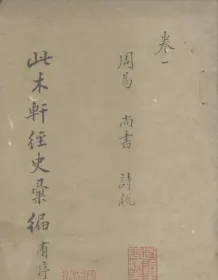 卷一
周易 尚書 詩說
此木軒經史彙編 有序